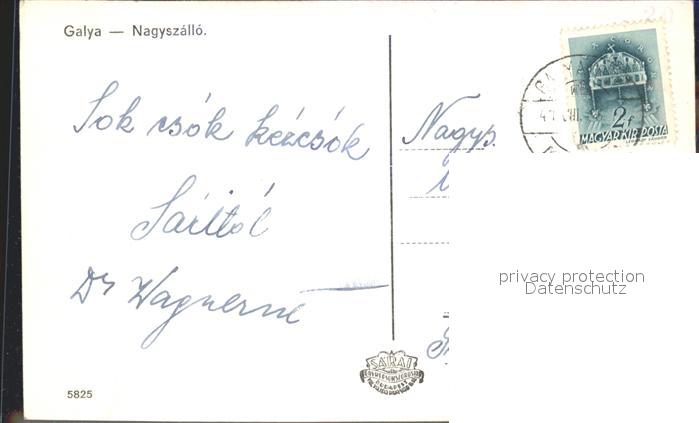 Galya — Nagyszálló.
Sok csók kézcsók
Sáritól
Dr Wagnerné
Nagys.
2f
MAGYAR KIR. POSTA
privacy protection
Datenschutz
SÁRAI
BUDAPEST
5825